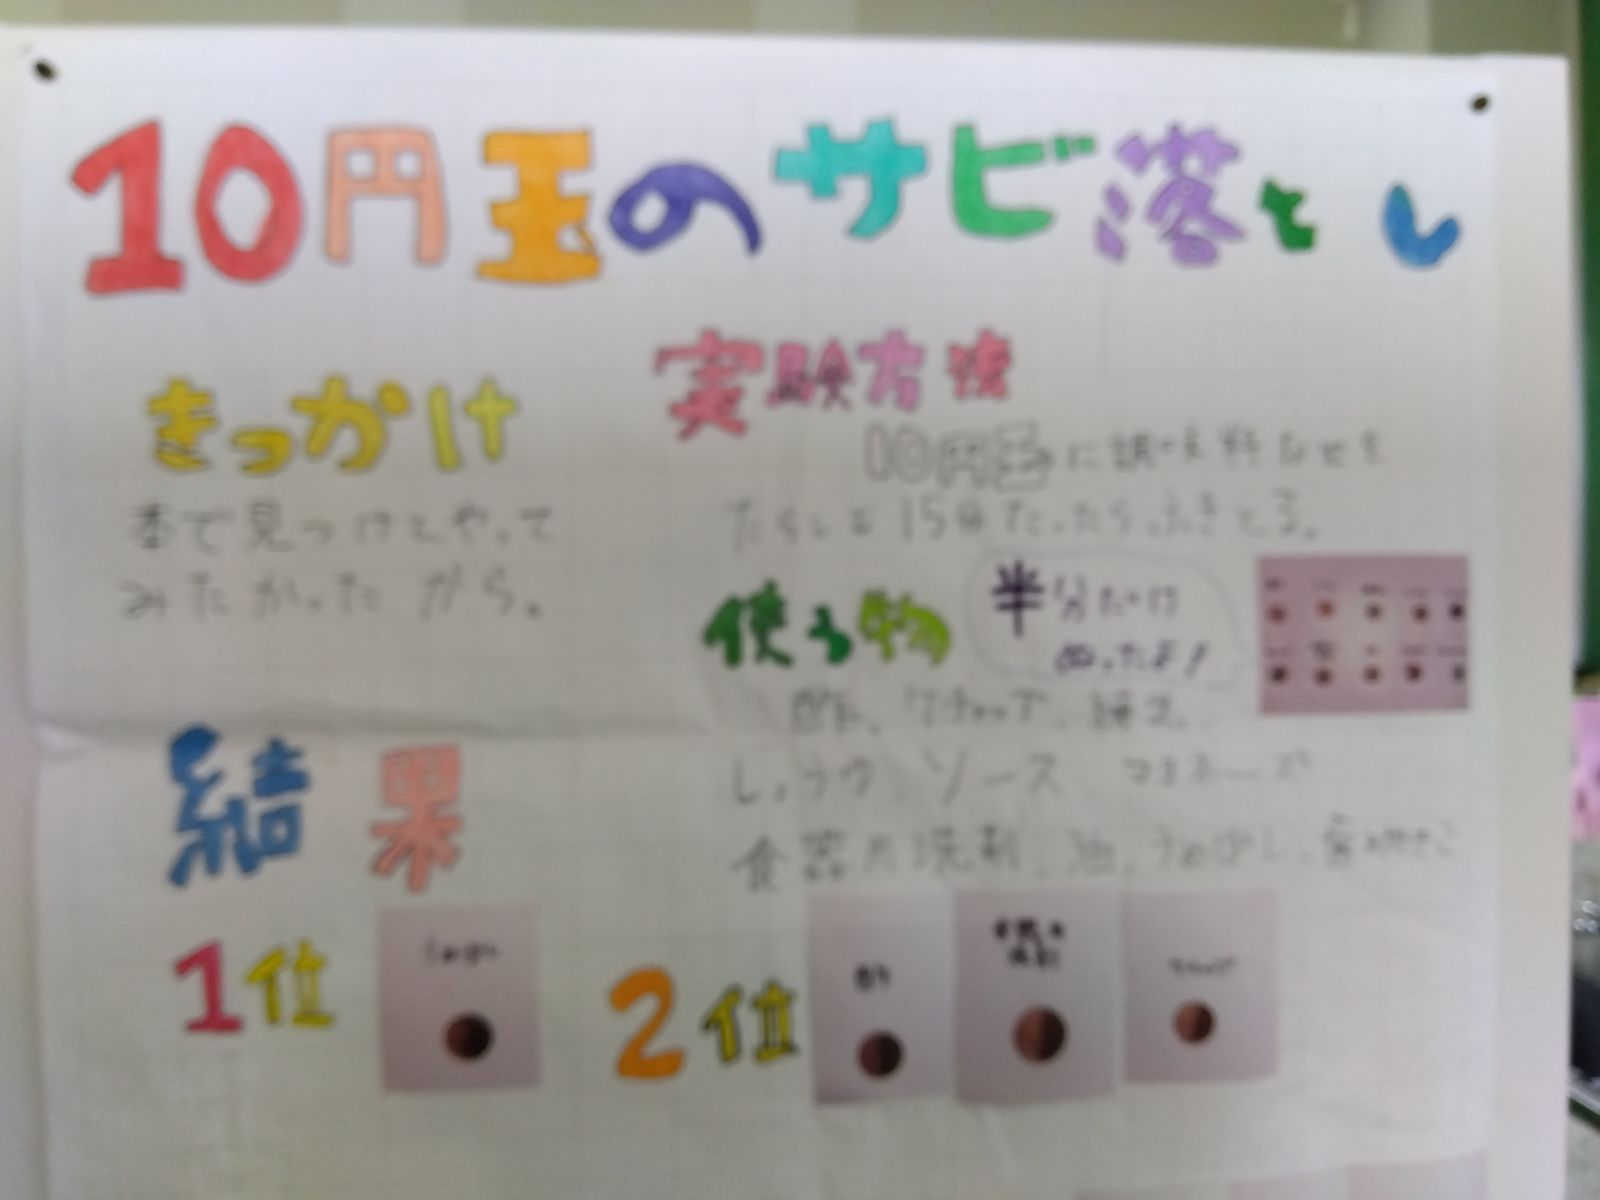 10円玉のサビ落とし
きっかけ
本で見つけてやって
みたかったから。
実験方法
10円玉に調味料などを
たらして15分たったらふきとる。
使う物
半分だけ
ぬったよ!
酢、ケチャップ、
しょうゆ、ソース、マヨネーズ
食器用洗剤、油、うめぼし、
結果
1位
うめぼし
2位
酢
ケチャップ